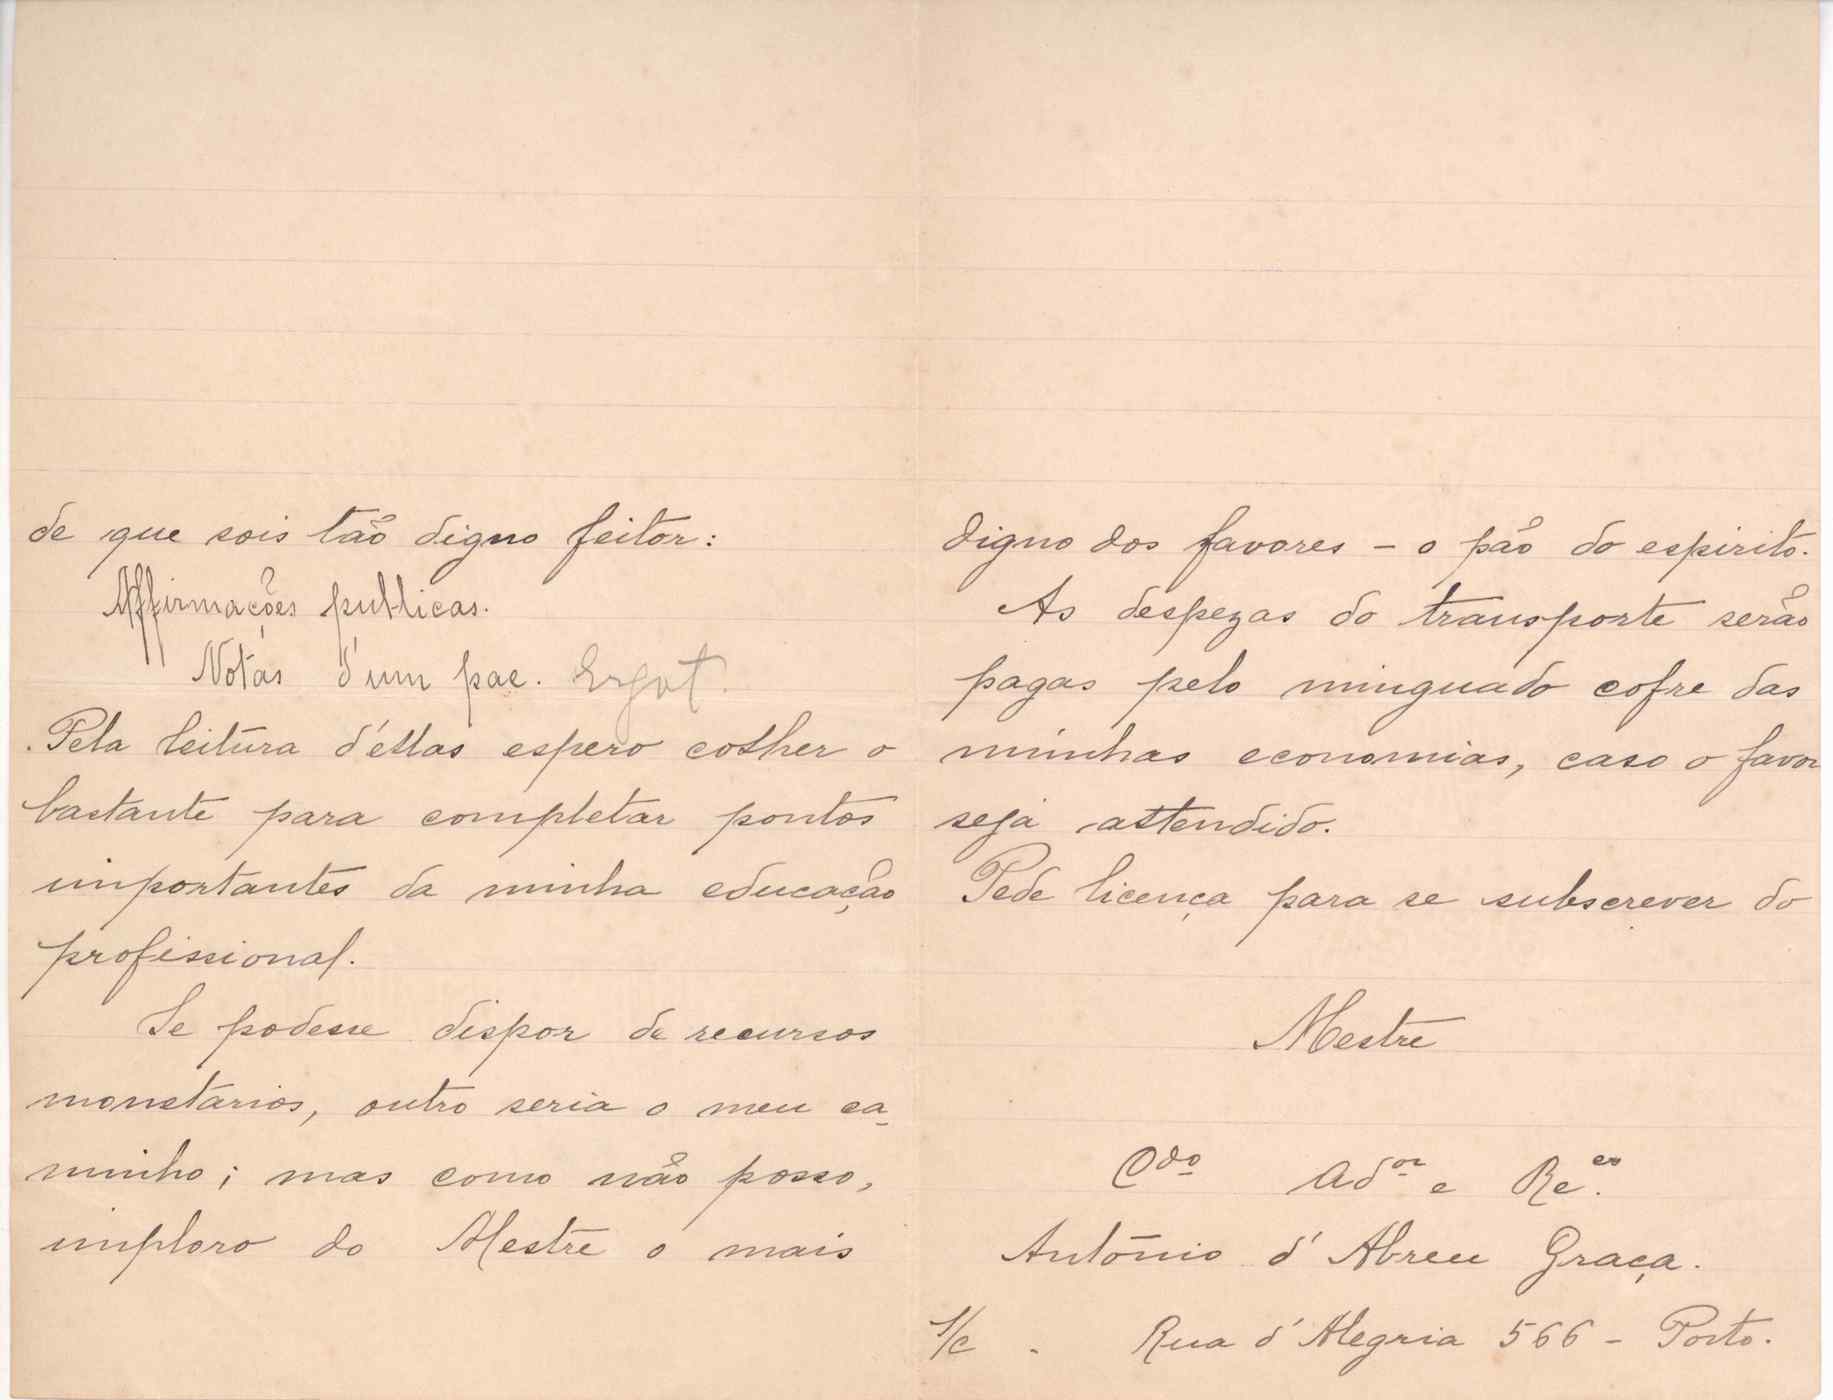 de que sois tão digno feitor:
Affirmações publicas.
Notas d'um pae. Esgot.
Pela leitura d'ellas espero colher o
bastante para completar pontos
importantes da minha educação
profissional.
Se podesse dispor de recursos
monetarios, outro seria o meu ca-
minho; mas como não posso,
imploro do Mestre o mais
digno dos favores - o pão do espirito.
As despezas do transporte serão
pagas pelo minguado cofre das
minhas economias, caso o favor
seja attendido.
Pede licença para se subscrever do
Mestre
Cdo Ador e Re.co
António d'Abreu Graça.
S/c. Rua d'Alegria 566 - Porto.